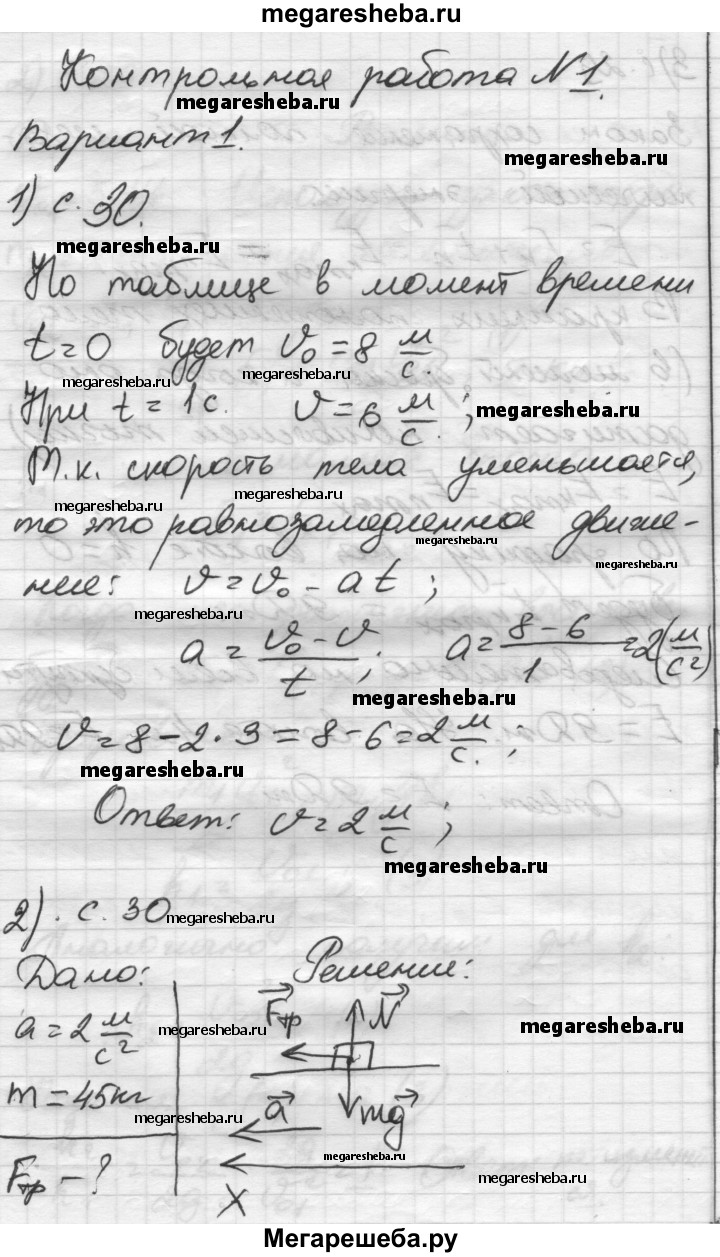 megaresheba.ru
Контрольная работа №1.
megaresheba.ru
Вариант 1.
megaresheba.ru
1) с. 30.
megaresheba.ru
По таблице в момент времени
t=0 будет v₀ = 8 м/с.
megaresheba.ru
megaresheba.ru
При t = 1с. v = 6 м/с. ;
megaresheba.ru
Т.к. скорость тела уменьшается,
megaresheba.ru
megaresheba.ru
то это равнозамедленное движе-
megaresheba.ru
megaresheba.ru
ние: v = v₀ - at ;
megaresheba.ru
a = (v₀ - v)/t ; a = (8 - 6)/1 = 2 (м/с²)
megaresheba.ru
v = 8 - 2 · 3 = 8 - 6 = 2 м/с. ;
megaresheba.ru
Ответ: v = 2 м/с ;
megaresheba.ru
2). с. 30
megaresheba.ru
Дано: Решение:
a = 2 м/с² F⃗тр N⃗
megaresheba.ru
megaresheba.ru
m = 45кг a⃗ mg⃗
megaresheba.ru
megaresheba.ru
Fтр - ?
megaresheba.ru
X
Мегарешеба.ру